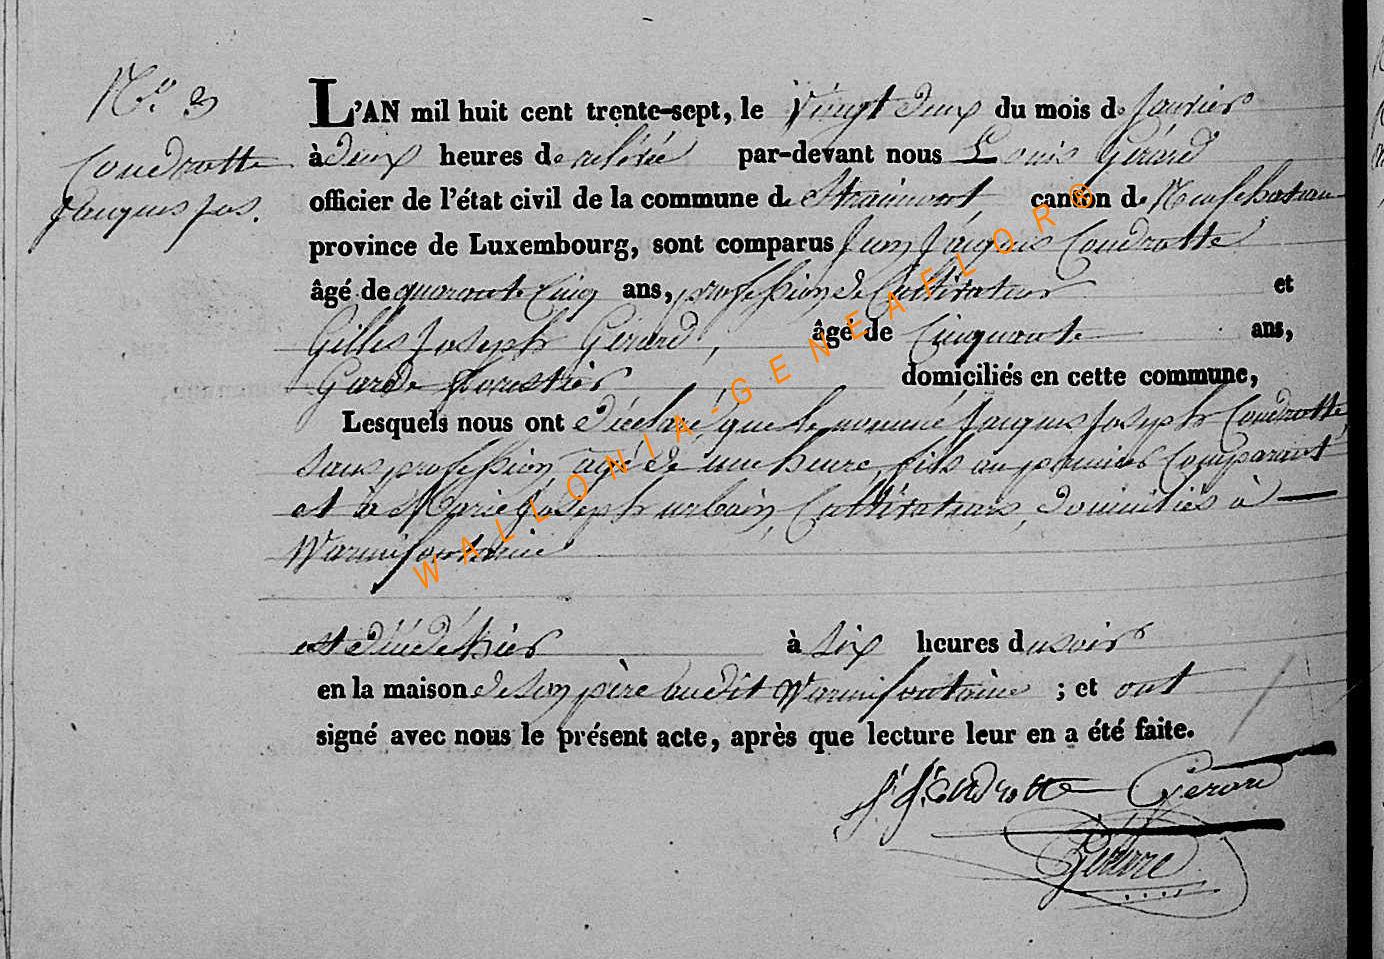 N.o 3
Coudrotte
Jacques Jos.
L'AN mil huit cent trente-sept, le Vingt deux du mois de Janvier
à deux heures de relévée par-devant nous Louis Gérard
officier de l'état civil de la commune de Straimont canton de Neufchateau
province de Luxembourg, sont comparus Jean Jacques Coudrotte
âgé de quarante Cinq ans, profession de Cultivateur et
Gilles Joseph Gérard, âgé de Cinquante ans,
Garde forestier domiciliés en cette commune,
Lesquels nous ont déclaré que le nommé Jacques Joseph Coudrotte,
sans profession agé de une heure, fils au premier Comparant
et à Marie Joseph urbain, Cultivateurs, domiciliés à
Warmifontaine
est décédé hier à six heures du soir
en la maison de son père audit Warmifontaine ; et ont
signé avec nous le présent acte, après que lecture leur en a été faite.
J. J. Coudrotte Gerard
Gérard
WALLONIA-GENEAFLOR®